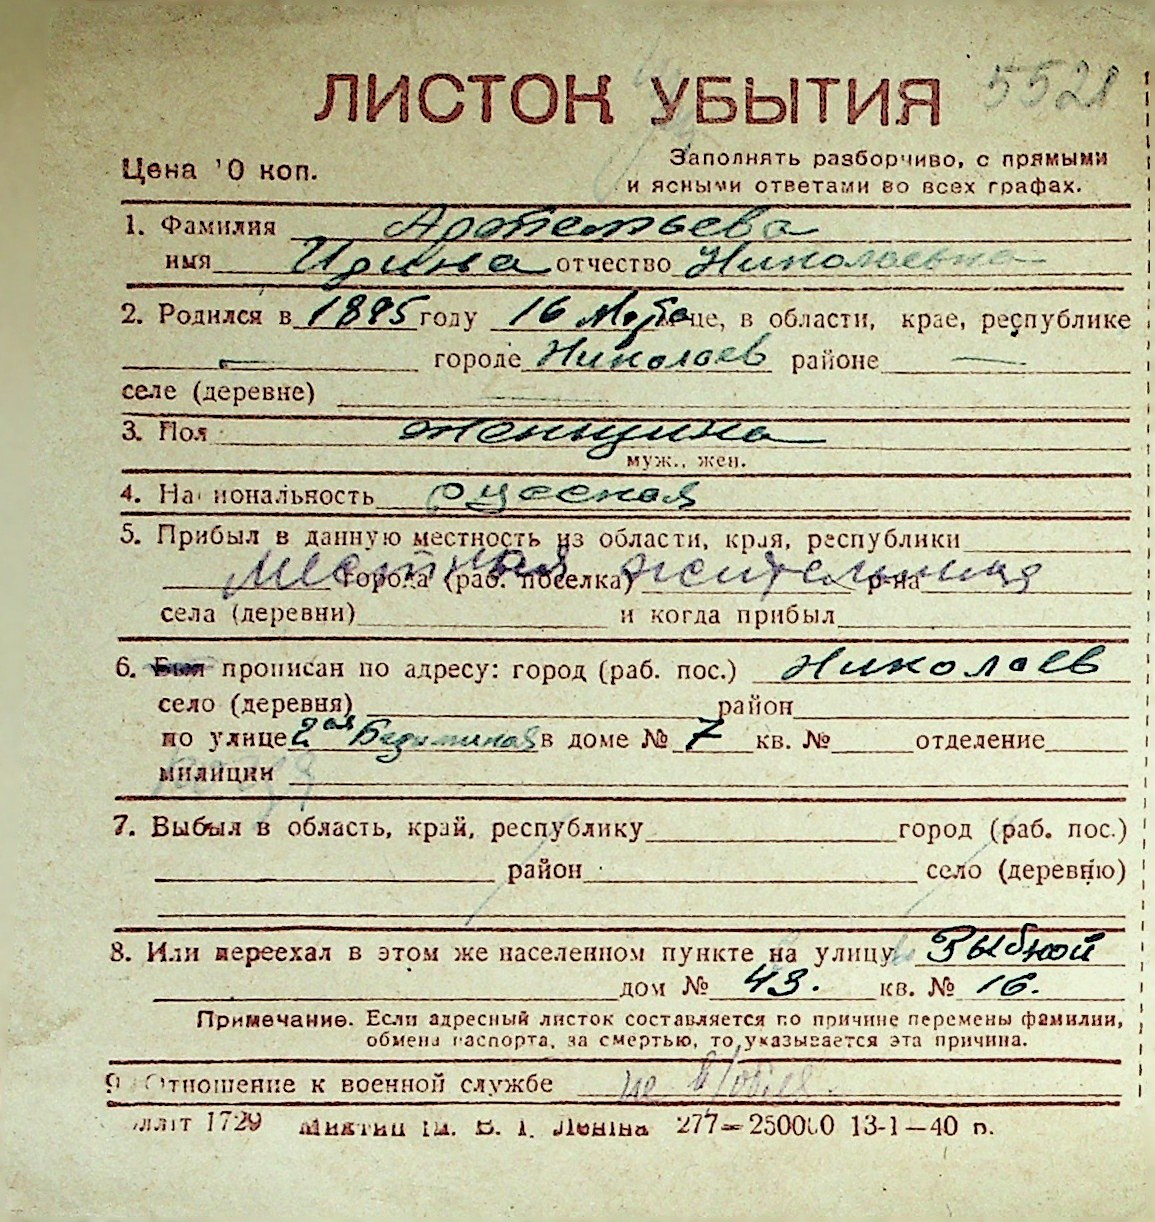 ЛИСТОК УБЫТИЯ 5521
Цена 10 коп.
Заполнять разборчиво, с прямыми
и ясными ответами во всех графах.
1. Фамилия Артемьева
имя Ирина отчество Николаевна
2. Родился в 1895 году 16 Марта це, в области, крае, республике
— городе Николаев районе —
селе (деревне) —
3. Пол женщина
муж., жен.
4. Национальность русская
5. Прибыл в данную местность из области, края, республики
местная жительница
города (раб. поселка) р-на
села (деревни) и когда прибыл
6. Был прописан по адресу: город (раб. пос.) Николаев
село (деревня) район
по улице 2ая в доме № 7 кв. № отделение
милиции
7. Выбыл в область, край, республику город (раб. пос.)
район село (деревню)
8. Или переехал в этом же населенном пункте на улицу
дом № 43. кв. № 16.
Примечание. Если адресный листок составляется по причине перемены фамилии,
обмена паспорта, за смертью, то указывается эта причина.
9. Отношение к военной службе не в/обяз.
1729 ім. В. І. Леніна 277—250000 13-1—40 р.